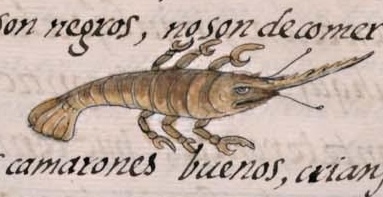 son negros, no son de comer
camarones buenos, crian